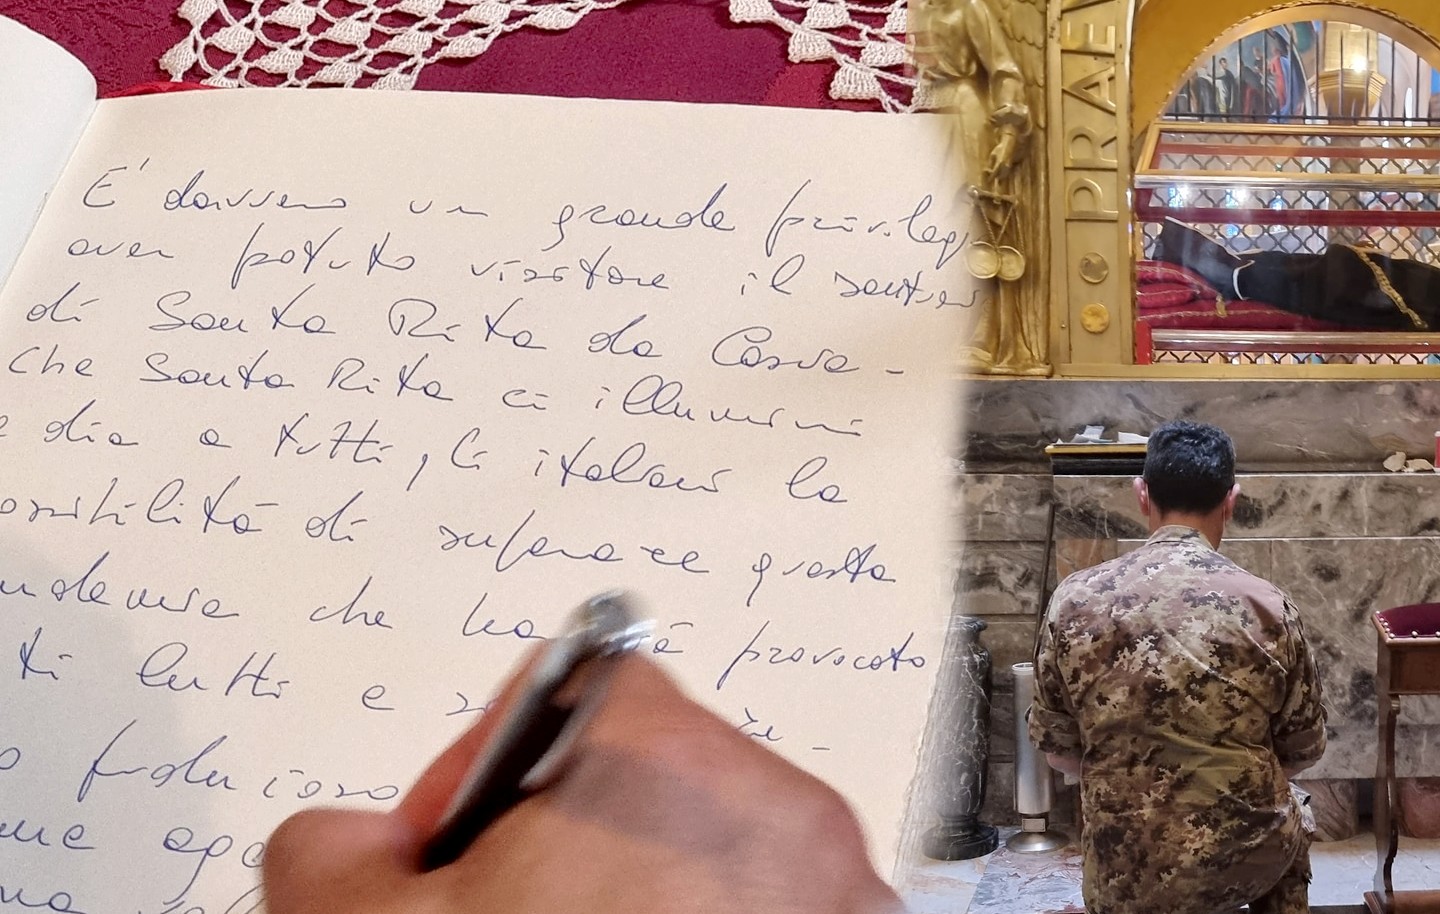 E' davvero un grande privileg
aver potuto visitare il santuar
di Santa Rita da Cascia -
Che Santa Rita ci illumini
e dia a tutti gli italiani la
ossibilità di superare questa
ndemia che ha già provocato
ti lutti e
PRAE